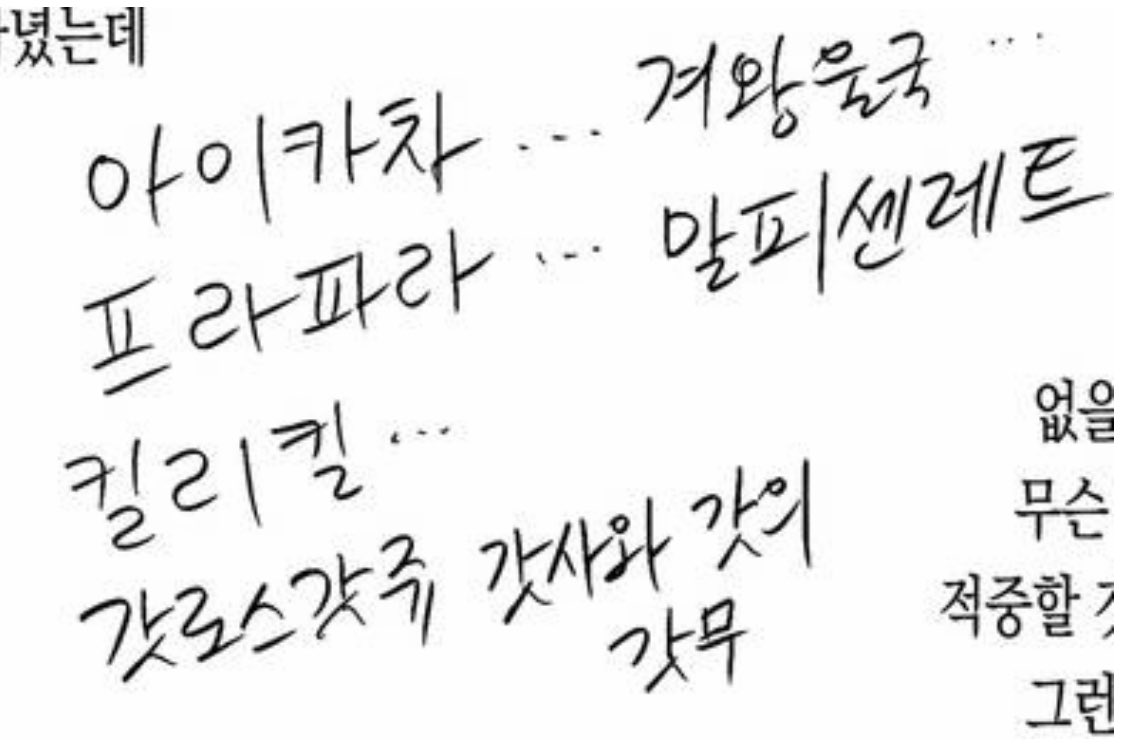 녔는데
아이카차... 겨왕윤국...
프라파라... 말피센레트
킬리킬...
갓로스갓쥬 갓사와 갓의
갓무
없을
무슨
적중할
그런